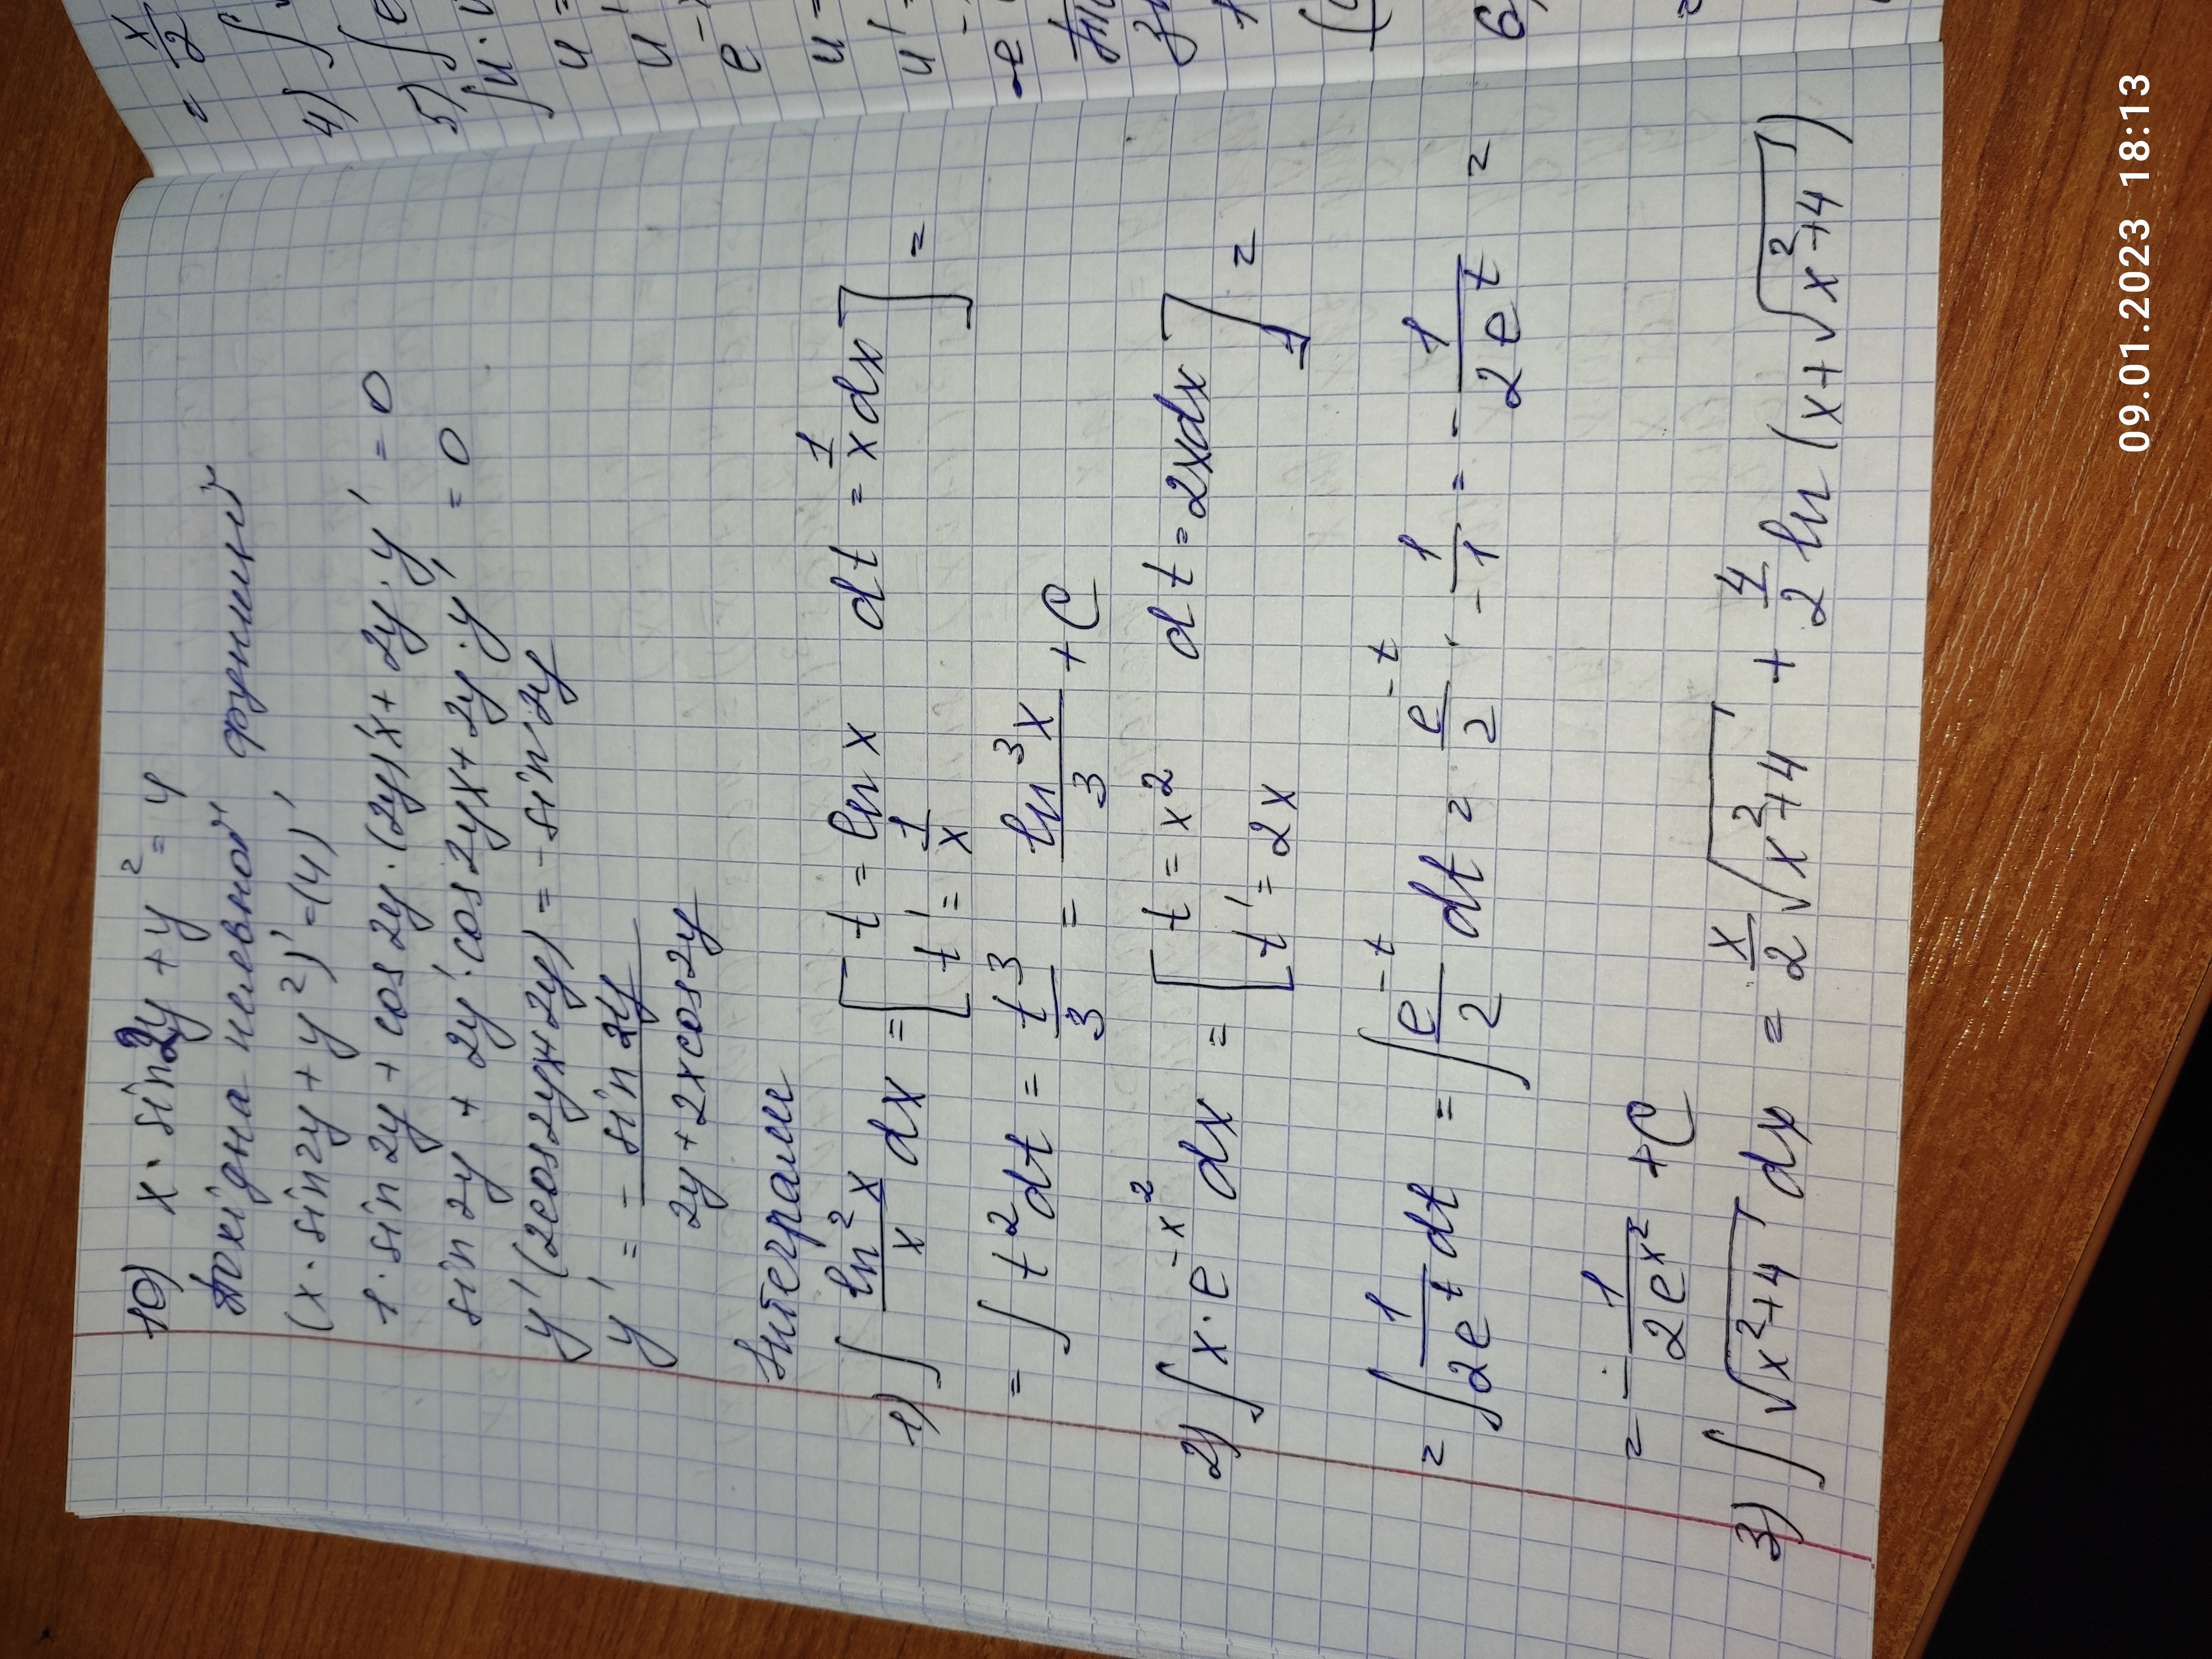 10) x · sin 2y + y² = 4
Похідна неявной функций
(x · sin 2y + y²)' = (4)'
1 · sin 2y + cos 2y · (2y)'x + 2y · y' = 0
sin 2y + 2y' · cos 2yx + 2y · y' = 0
y'(2cos 2yx + 2y) = - sin 2y
y' = - \frac{sin 2y}{2y + 2x cos 2y}
Інтеграли
1) ∫ \frac{ln² x}{x} dx = [ t = ln x   dt = \frac{1}{x} dx ] =
t' = \frac{1}{x}
= ∫ t² dt = \frac{t³}{3} = \frac{ln³ x}{3} + C
2) ∫ x · e^{-x²} dx = [ t = x²   dt = 2xdx ] =
t' = 2x
= ∫ \frac{1}{2e^t} dt = ∫ \frac{e^{-t}}{2} dt = \frac{e^{-t}}{2} · - \frac{1}{1} = - \frac{1}{2e^t} =
= - \frac{1}{2e^{x²}} + C
3) ∫ √(x²+4) dx = \frac{x}{2} √(x²+4) + \frac{4}{2} ln (x + √(x²+4))
= \frac{x}{2}
4) ∫
5) ∫ e
∫ u ·
u =
u'
e^{-x}
u =
u' =
-e^-
6)
=
09.01.2023 18:13